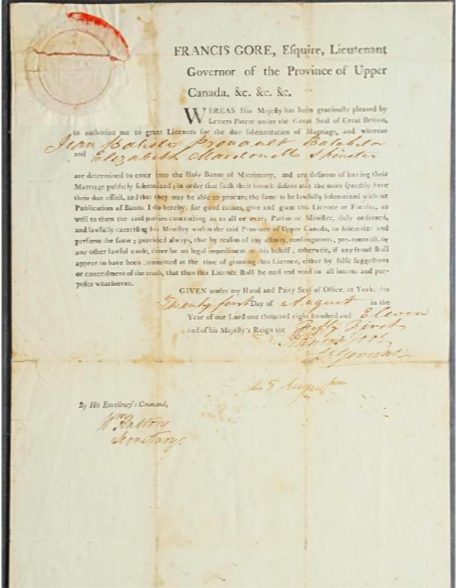 FRANCIS GORE, Esquire, Lieutenant
Governor of the Province of Upper
Canada, &c. &c. &c.
WHEREAS His Majesty has been graciously pleased by
Letters Patent under the Great Seal of Great Britain,
to authorize me to grant Licences for the due Solemnization of Marriage, and whereas
Jean Batiste Batchelor
and Elizabeth Macdonell Spinster
are determined to enter into the Holy Banns of Matrimony, and are desirous of having their
Marriage publicly solemnized; in order that such their honest desires may the more speedily have
their due effect, and that they may be able to procure the same to be lawfully solemnized without
Publication of Banns. I do hereby, for good causes, give and grant this Licence or Faculty, as
well to them the said parties contracting as to all or every Parson or Minister, duly ordained,
and lawfully exercising his Ministry within the said Province of Upper Canada, to solemnize and
perform the same; provided always, that by reason of any affinity, consanguinity, pre-contract, or
any other lawful cause, there be no legal impediment in this behalf; otherwise, if any fraud shall
appear to have been committed at the time of granting this Licence, either by false suggestions
or concealment of the truth, that then this Licence shall be null and void to all intents and pur-
poses whatsoever.
GIVEN under my Hand and Privy Seal of Office, at York, this
Twenty first Day of August in the
Year of our Lord one thousand eight hundred and Eleven
and of his Majesty's Reign the Fifty first
Francis Gore
Lt Governor
By His Excellency's Command,
Wm Halton
Secretary